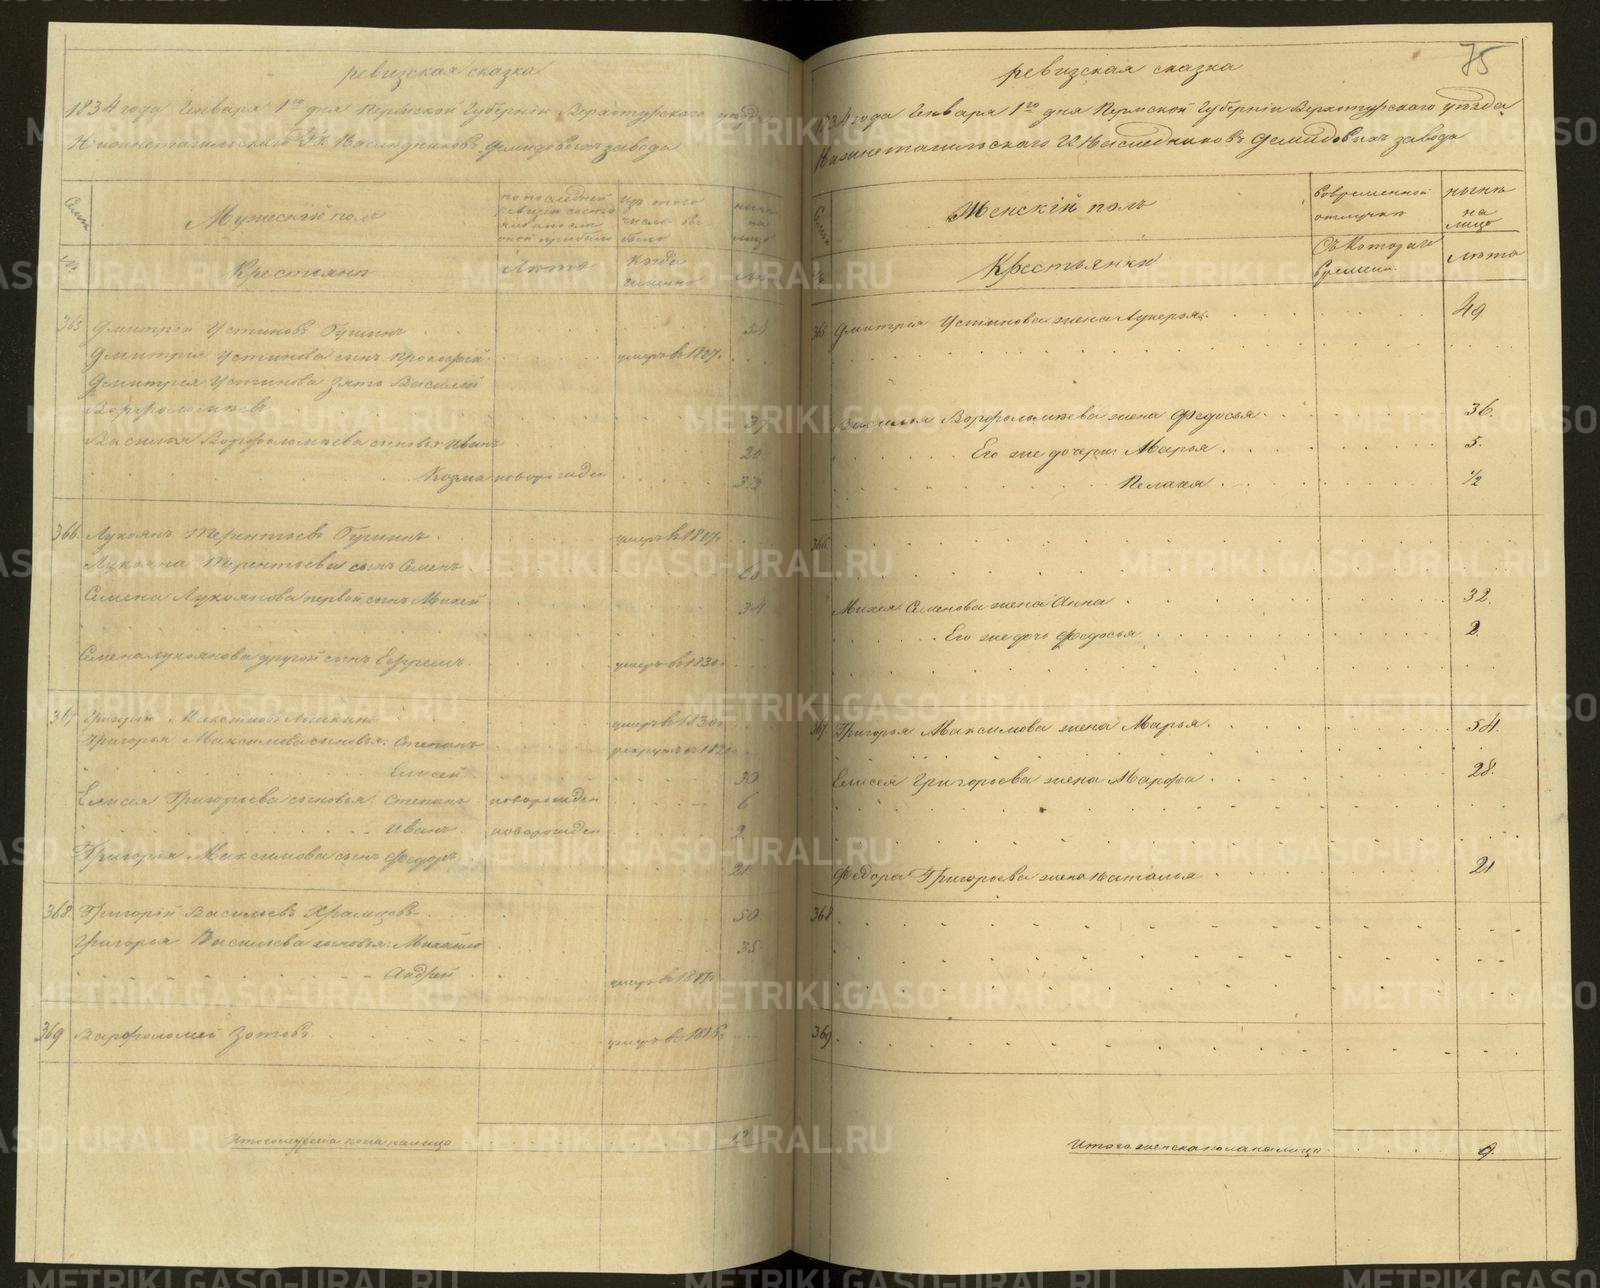 ревизская сказка
1834 года Генваря 1го дня Пермской Губерніи Верхотурского уезда
Нижнетагильскаго Гг. Наследниковъ Демидовыхъ завода
Семьи
Мужескій полъ
по последней ревизіи состояло
изъ того числа выбыло
ныне на лицо
№
Крестьяне
Лѣта
когда именно
лѣта
365 Дмитрій Устиновъ Гушинъ 54
Дмитрія Устинова сынъ Прокофій умеръ в 1827.
Дмитрія Устинова зять Василей
Ворфоломеевъ 37
Василья Ворфоломеева сыновья Иванъ 20
Козма новорожден
366. Лукоянъ Терентьевъ Гушинъ умеръ в 1827.
Лукояна Терентьева сынъ Семенъ 60
Семена Лукоянова первой сынъ Михей 34
Семена Лукоянова другой сынъ умеръ в 1830.
367 Григорій Максимовъ умеръ в 1830.
Григорья Максимова сыновья: Степанъ
Елисей 30
Елисея Григорьева сыновья Степанъ новорожден 6
Иванъ новорожден 2
Григорья Максимова сынъ Федоръ 21
368. Григорій Васильевъ Храмцовъ 50
Григорья Васильева сыновья: Михайло 35
Андрей
369 Варфоломей Зотовъ
Итого мужеска пола на лицо 12
75
ревизская сказка
1834 года Генваря 1го дня Пермской Губерніи Верхотурского уезда
Нижнетагильскаго Гг Наследниковъ Демидовыхъ завода
Семьи
Женскій полъ
Во временной отлучке
ныне на лицо
№
Крестьянки
Съ Котораго времени.
лѣта
365 Дмитрія Устинова жена Лукерья 49
Василья Ворфоломеева жена Федосья 36.
Его же дочери: Марья 5.
Пелагея 1/2
366.
Михея Семенова жена Анна 32.
Его же дочь Федосья 2.
367. Григорья Максимова жена Марья. 54.
Елисея Григорьева жена Марфа 28.
Федора Григорьева жена Наталья 21
368
369
Итого женска пола на лицо 9.
METRIKI.GASO-URAL.RU